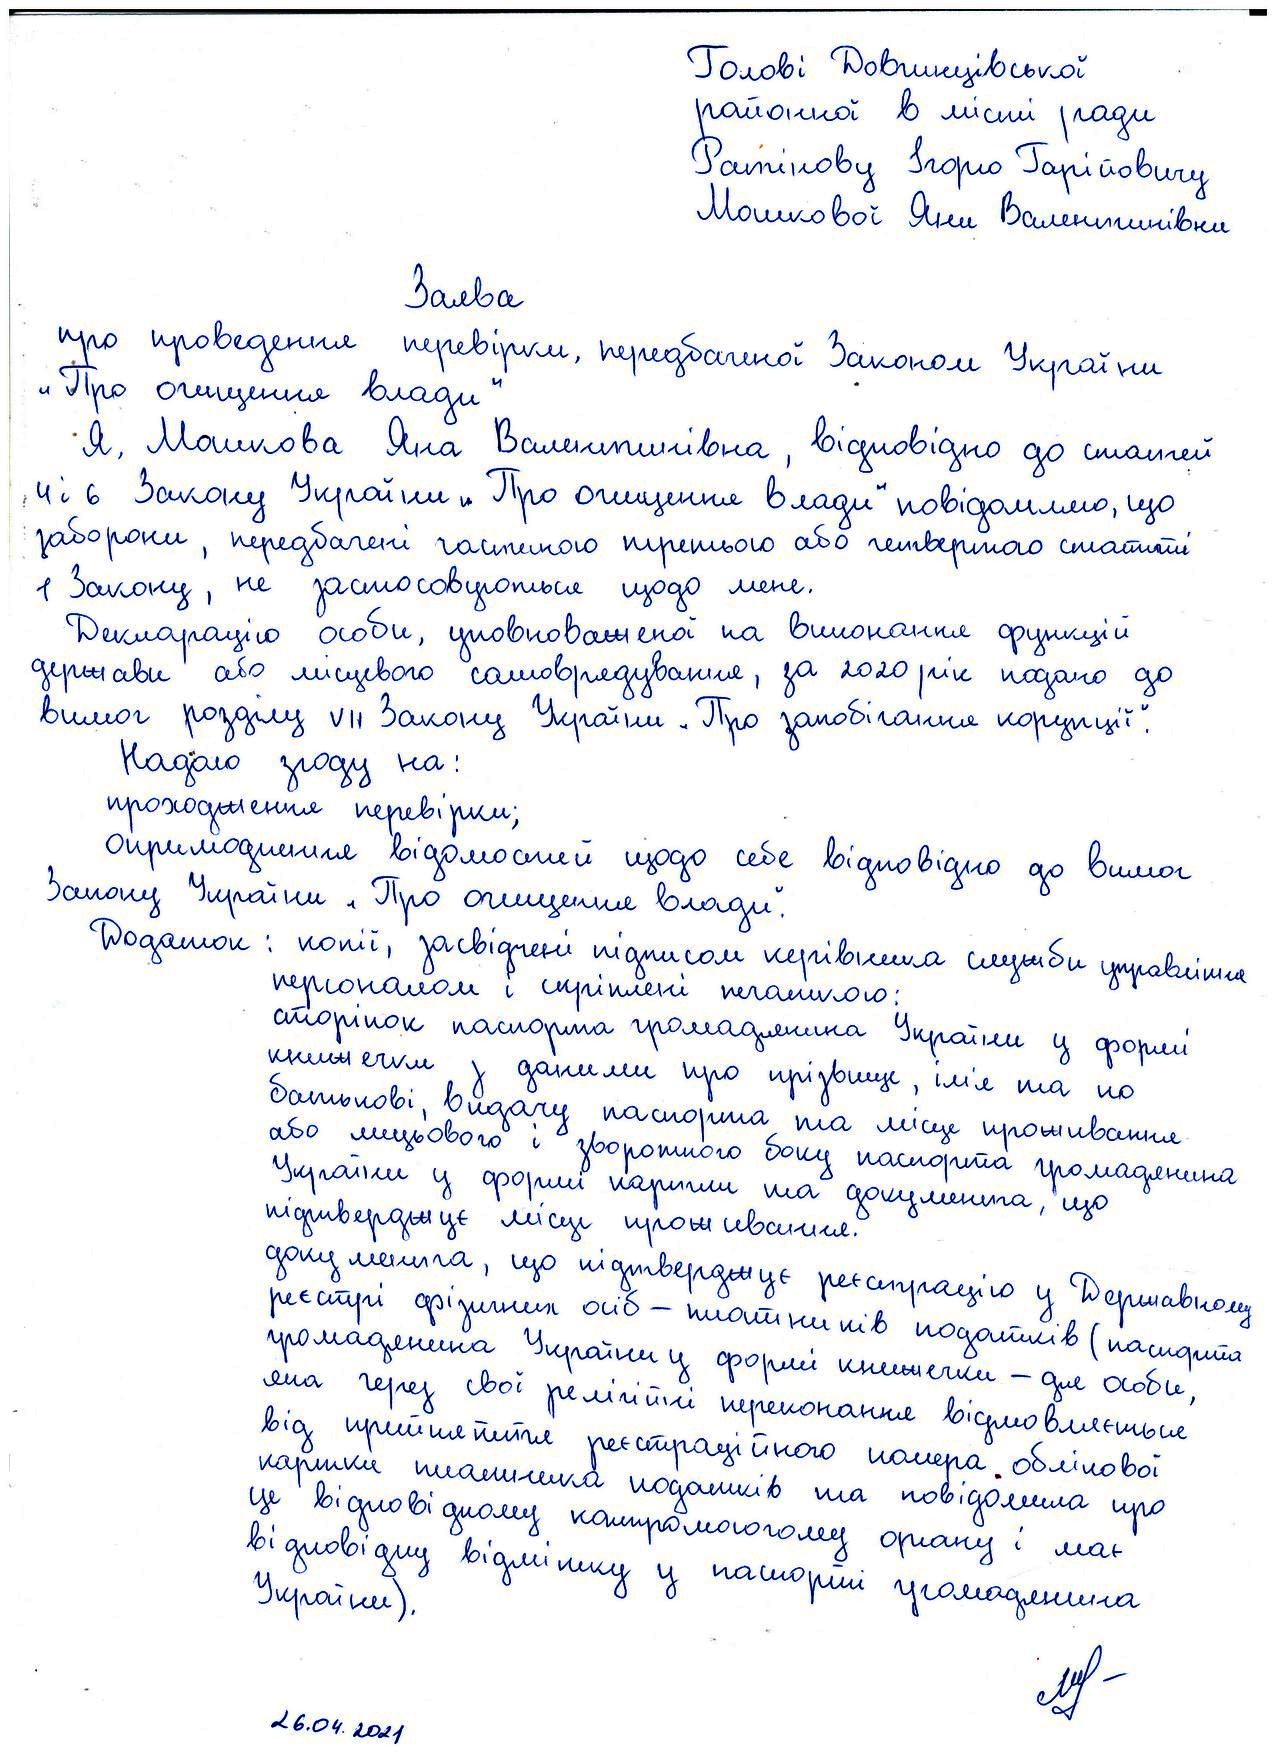 Голові Довгинцівської
районної в місті ради
Ратінову Ігорю Гарійовичу
Мошкової Яни Валентинівни
Заява
про проведення перевірки, передбаченої Законом України
„Про очищення влади"
Я, Мошкова Яна Валентинівна, відповідно до статей
4 і 6 Закону України „Про очищення влади" повідомляю, що
заборони, передбачені частиною третьою або четвертою статті
1 Закону, не застосовуються щодо мене.
Декларацію особи, уповноваженої на виконання функцій
держави або місцевого самоврядування, за 2020 рік подано до
вимог розділу VII Закону України „Про запобігання корупції".
Надаю згоду на:
проходження перевірки;
оприлюднення відомостей щодо себе відповідно до вимог
Закону України „Про очищення влади".
Додаток: копії, засвідчені підписом керівника служби управління
персоналом і скріплені печаткою:
сторінок паспорта громадянина України у формі
книжечки з даними про прізвище, ім'я та по
батькові, видачу паспорта та місце проживання
або лицьового і зворотного боку паспорта громадянина
України у формі картки та документа, що
підтверджує місце проживання.
документа, що підтверджує реєстрацію у Державному
реєстрі фізичних осіб – платників податків (паспорта
громадянина України у формі книжечки – для особи,
яка через свої релігійні переконання відмовляється
від прийняття реєстраційного номера облікової
картки платника податків та повідомила про
це відповідному контролюючому органу і має
відповідну відмітку у паспорті громадянина
України).
26.04.2021